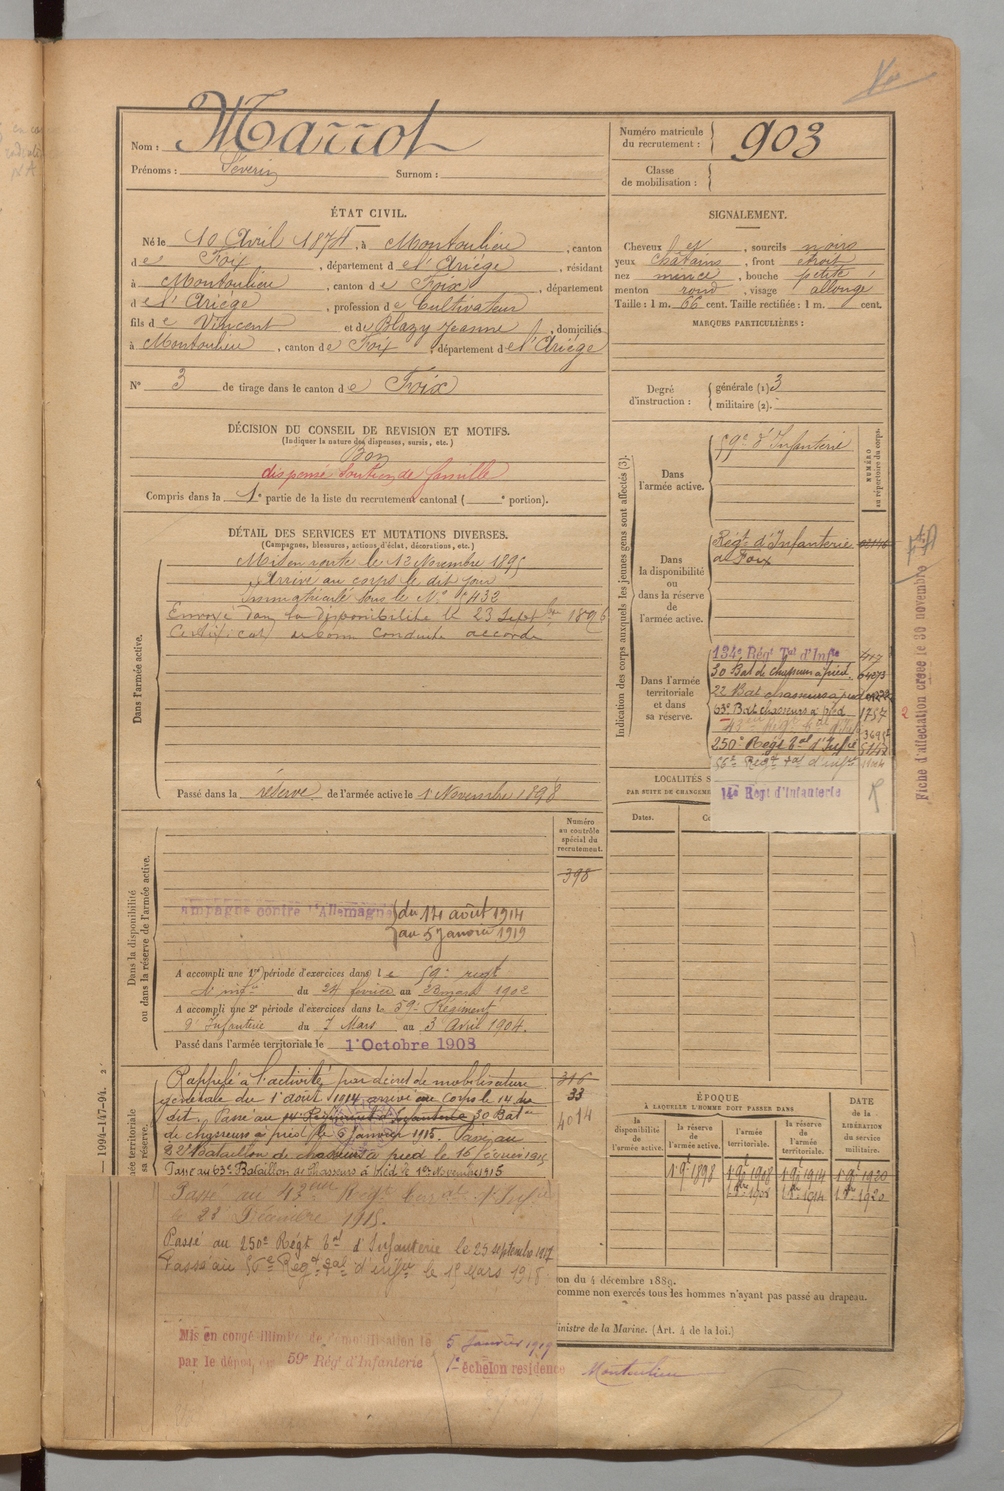 Nom : Marrot
Prénoms : Séverin Surnom :
Numéro matricule
du recrutement : 903
Classe
de mobilisation :
ÉTAT CIVIL.
Né le 10 Avril 1874, à Montoulieu, canton
de Foix, département de l'Ariège, résidant
à Montoulieu, canton de Foix, département
de l'Ariège, profession de Cultivateur
fils de Vincent et de Blazy Jeanne, domiciliés
à Montoulieu, canton de Foix, département de l'Ariège
N° 3 de tirage dans le canton de Foix
DÉCISION DU CONSEIL DE REVISION ET MOTIFS.
(Indiquer la nature des dispenses, sursis, etc.)
Bon
dispensé Soutien de famille
Compris dans la 1e partie de la liste du recrutement cantonal ( e portion).
DÉTAIL DES SERVICES ET MUTATIONS DIVERSES.
(Campagnes, blessures, actions d'éclat, décorations, etc.)
Dans l'armée active.
Mis en route le 12 Novembre 1895
Arrivé au corps le dit jour
Immatriculé sous le N° 432
Envoyé dans la disponibilité le 23 Septbre 1896
Certificat de bonne conduite accordé
Passé dans la réserve de l'armée active le 1 Novembre 1898
Dans la disponibilité
ou dans la réserve de l'armée active.
Numéro
au contrôle
spécial du
recrutement.
398
ampagne contre l'Allemagne du 14 août 1914
au 5 Janvier 1919
A accompli une 1re période d'exercices dans le 59e regt
d'infie du 24 février au 23 mars 1902
A accompli une 2e période d'exercices dans le 59e Régiment
d'Infanterie du 7 Mars au 3 Avril 1904.
Passé dans l'armée territoriale le 1er Octobre 1908
ée territoriale
sa réserve.
Rappelé à l'activité par décret de mobilisation
générale du 1er août 1914 arrivé au Corps le 14 du
dit. Passé au 14e Régiment d'Infanterie 30 Baton
de chasseurs à pied le 6 Janvier 1915. Passé au
22e Bataillon de chasseurs à pied le 16 février 1915
Passé au 63e Bataillon de Chasseurs à Pied le 1er Novembre 1915
316
33
4014
Passé au 43eme Régt territal d'Infie
le 28 Décembre 1915.
Passé au 250e Régt tal d'Infanterie le 25 septembre 1917
Passé au 56e Regt tal d'infie le 15 Mars 1918
Mis en congé illimité de démobilisation le 5 Janvier 1919
par le dépôt du 59e Régt d'Infanterie 1er échelon residence Montoulieu
— 1994-147-94.
SIGNALEMENT.
Cheveux , sourcils noirs
yeux chatains, front étroit
nez mince, bouche petite
menton rond, visage allongé
Taille : 1 m. 66 cent. Taille rectifiée : 1 m. cent.
MARQUES PARTICULIÈRES :
Degré
d'instruction :
générale (1) 3
militaire (2).
Indication des corps auxquels les jeunes gens sont affectés (3).
NUMÉRO
au répertoire du corps.
Dans
l'armée active.
59e d'Infanterie
Dans
la disponibilité
ou
dans la réserve
de
l'armée active.
Régt d'Infanterie
de Foix
Dans l'armée
territoriale
et dans
sa réserve.
134e Régt Tal d'Infie
30 Bat de chasseurs à pied
22 Bat chasseurs à pied
63e Bat chasseurs à pied 1757
43eme Régt tal d'Inf
250e Régt tal d'Infie
56e Régt tal d'infie
14e Régt d'Infanterie
Fiche d'affectation créée le 30 novembre
LOCALITÉS S
PAR SUITE DE CHANGEME
Dates.
ÉPOQUE
À LAQUELLE L'HOMME DOIT PASSER DANS
DATE
de la
LIBÉRATION
du service
militaire.
la
disponibilité
de
l'armée active.
la réserve
de
l'armée active.
l'armée
territoriale.
la réserve
de
l'armée
territoriale.
1er 9bre 1898 1er 9bre 1908 1er 9bre 1914 1er 9bre 1920
1er 8bre 1908 1er 8bre 1914 1er 8bre 1920
on du 4 décembre 1889.
comme non exercés tous les hommes n'ayant pas passé au drapeau.
inistre de la Marine. (Art. 4 de la loi.)